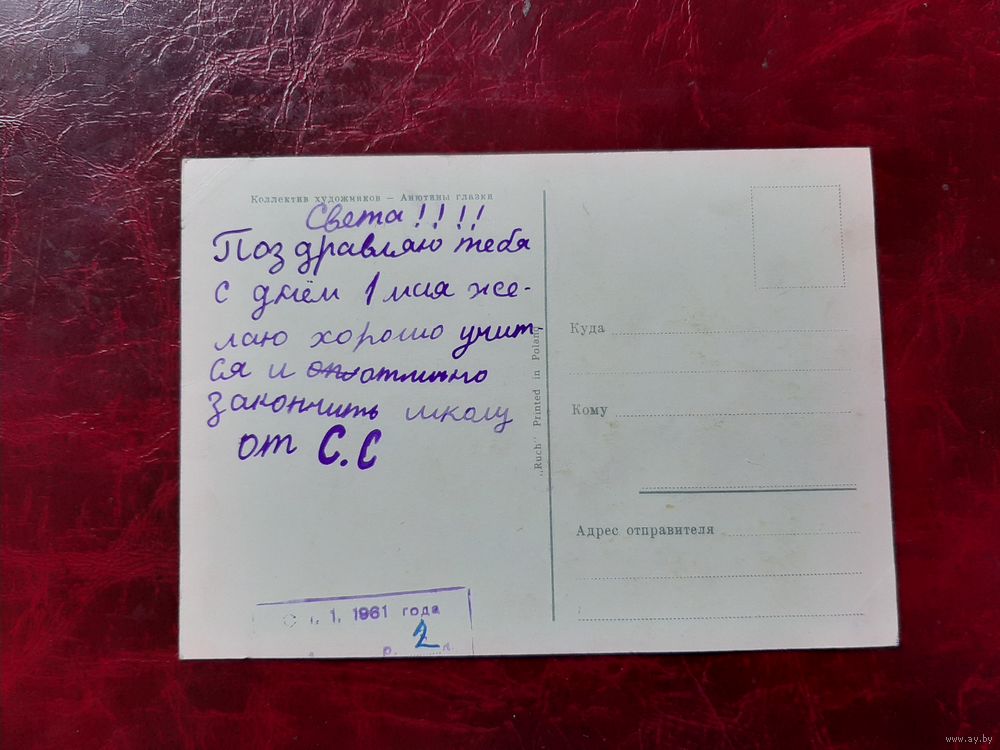 Коллектив художников — Анютины глазки
Света!!!!
Поздравляю тебя
с днём 1 мая же-
лаю хорошо учит
ся и отлично
закончить школу
от С.С
"Ruch" Printed in Poland
Куда
Кому
Адрес отправителя
1, 1961 года
р. 2 к.
www.ay.by